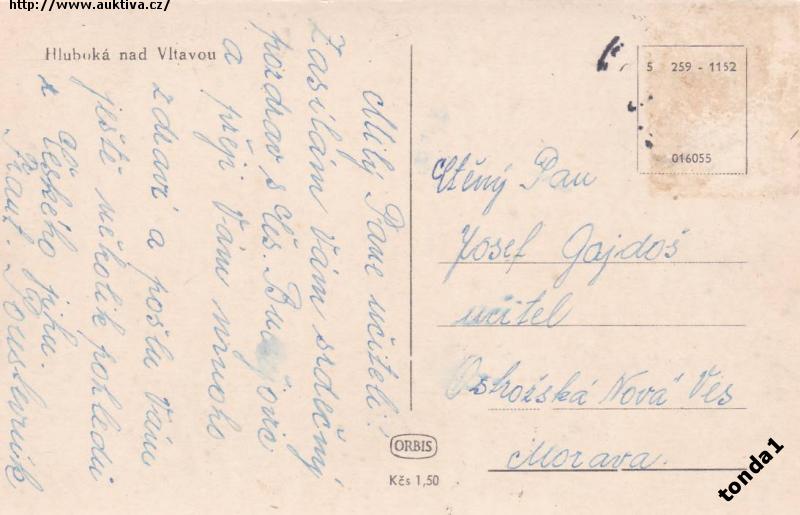 http://www.auktiva.cz/
Hluboká nad Vltavou
Milý Pane učiteli!
Zasílám Vám srdečný
pozdrav, s Čes. Budějovic
a přeji Vám mnoho
zdraví a pošlu Vám
ještě několik pohledů
z Českého jihu.
Frant. Poustevník
5 259 - 1152
016055
Ctěný Pan
Josef Gajdoš
učitel
Ostrožská Nová Ves
Morava.
ORBIS
Kčs 1,50
tonda1